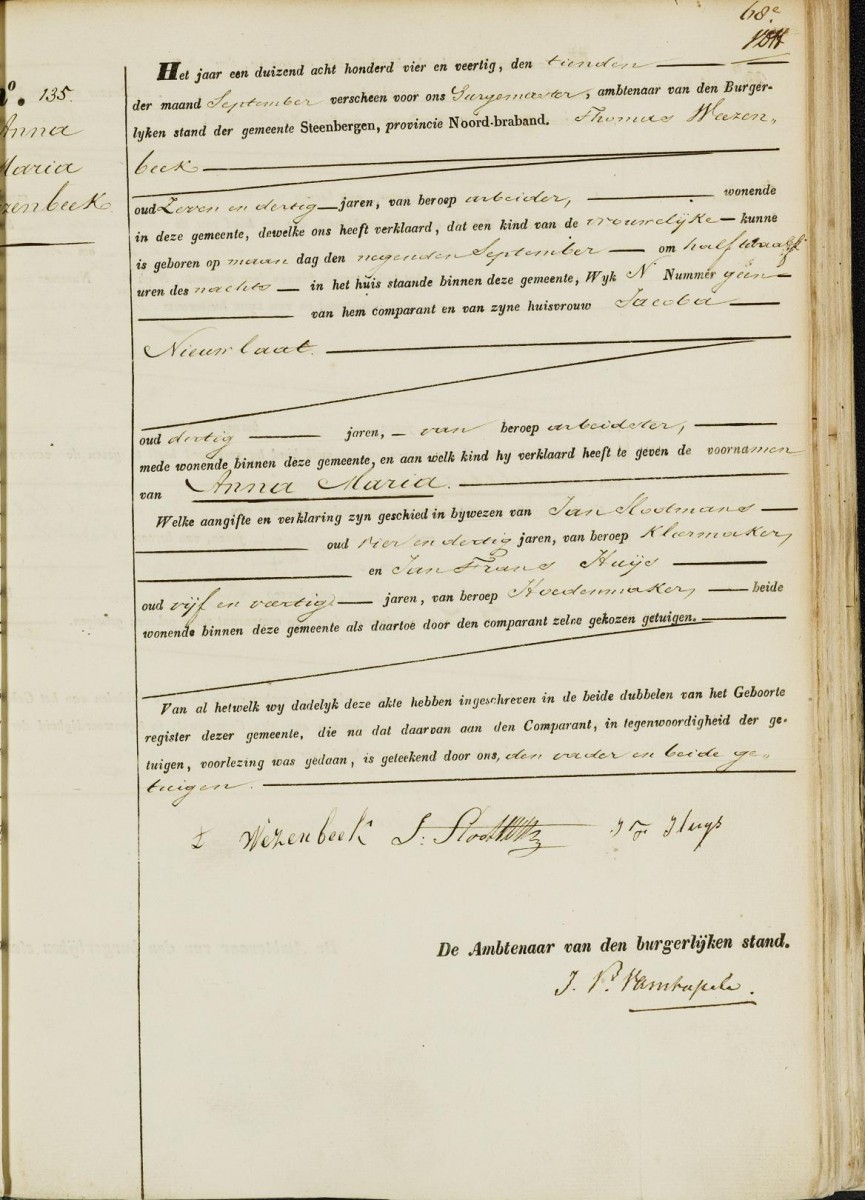 68e
No. 135.
Anna
Maria
zenbeek
Het jaar een duizend acht honderd vier en veertig, den tienden
der maand September verscheen voor ons Burgemeester, ambtenaar van den Burger-
lyken stand der gemeente Steenbergen, provincie Noord-braband. Thomas Weezen„
beek
oud Zeven en dertig jaren, van beroep arbeider, wonende
in deze gemeente, dewelke ons heeft verklaard, dat een kind van de vrouwelijke kunne
is geboren op maan dag den negenden September om half twaalf
uren des nachts in het huis staande binnen deze gemeente, Wyk N Nummer geen
van hem comparant en van zyne huisvrouw Jacoba
Nieuwlaat.
oud dertig jaren, van beroep arbeidster,
mede wonende binnen deze gemeente, en aan welk kind hy verklaard heeft te geven de voornamen
van Anna Maria.
Welke aangifte en verklaring zyn geschied in bywezen van Jan Slootmans
oud vier en dertig jaren, van beroep Kleermaker,
en Jan Frans Huijs
oud vijf en veertig jaren, van beroep Hoedenmaker, beide
wonende binnen deze gemeente als daartoe door den comparant zelve gekozen getuigen.
Van al hetwelk wy dadelyk deze akte hebben ingeschreven in de beide dubbelen van het Geboorte
register dezer gemeente, die na dat daarvan aan den Comparant, in tegenwoordigheid der ge-
tuigen, voorlezing was gedaan, is geteekend door ons, den vader en beide ge„
tuigen.
Wezenbeek J: J F Huys
De Ambtenaar van den burgerlijken stand.